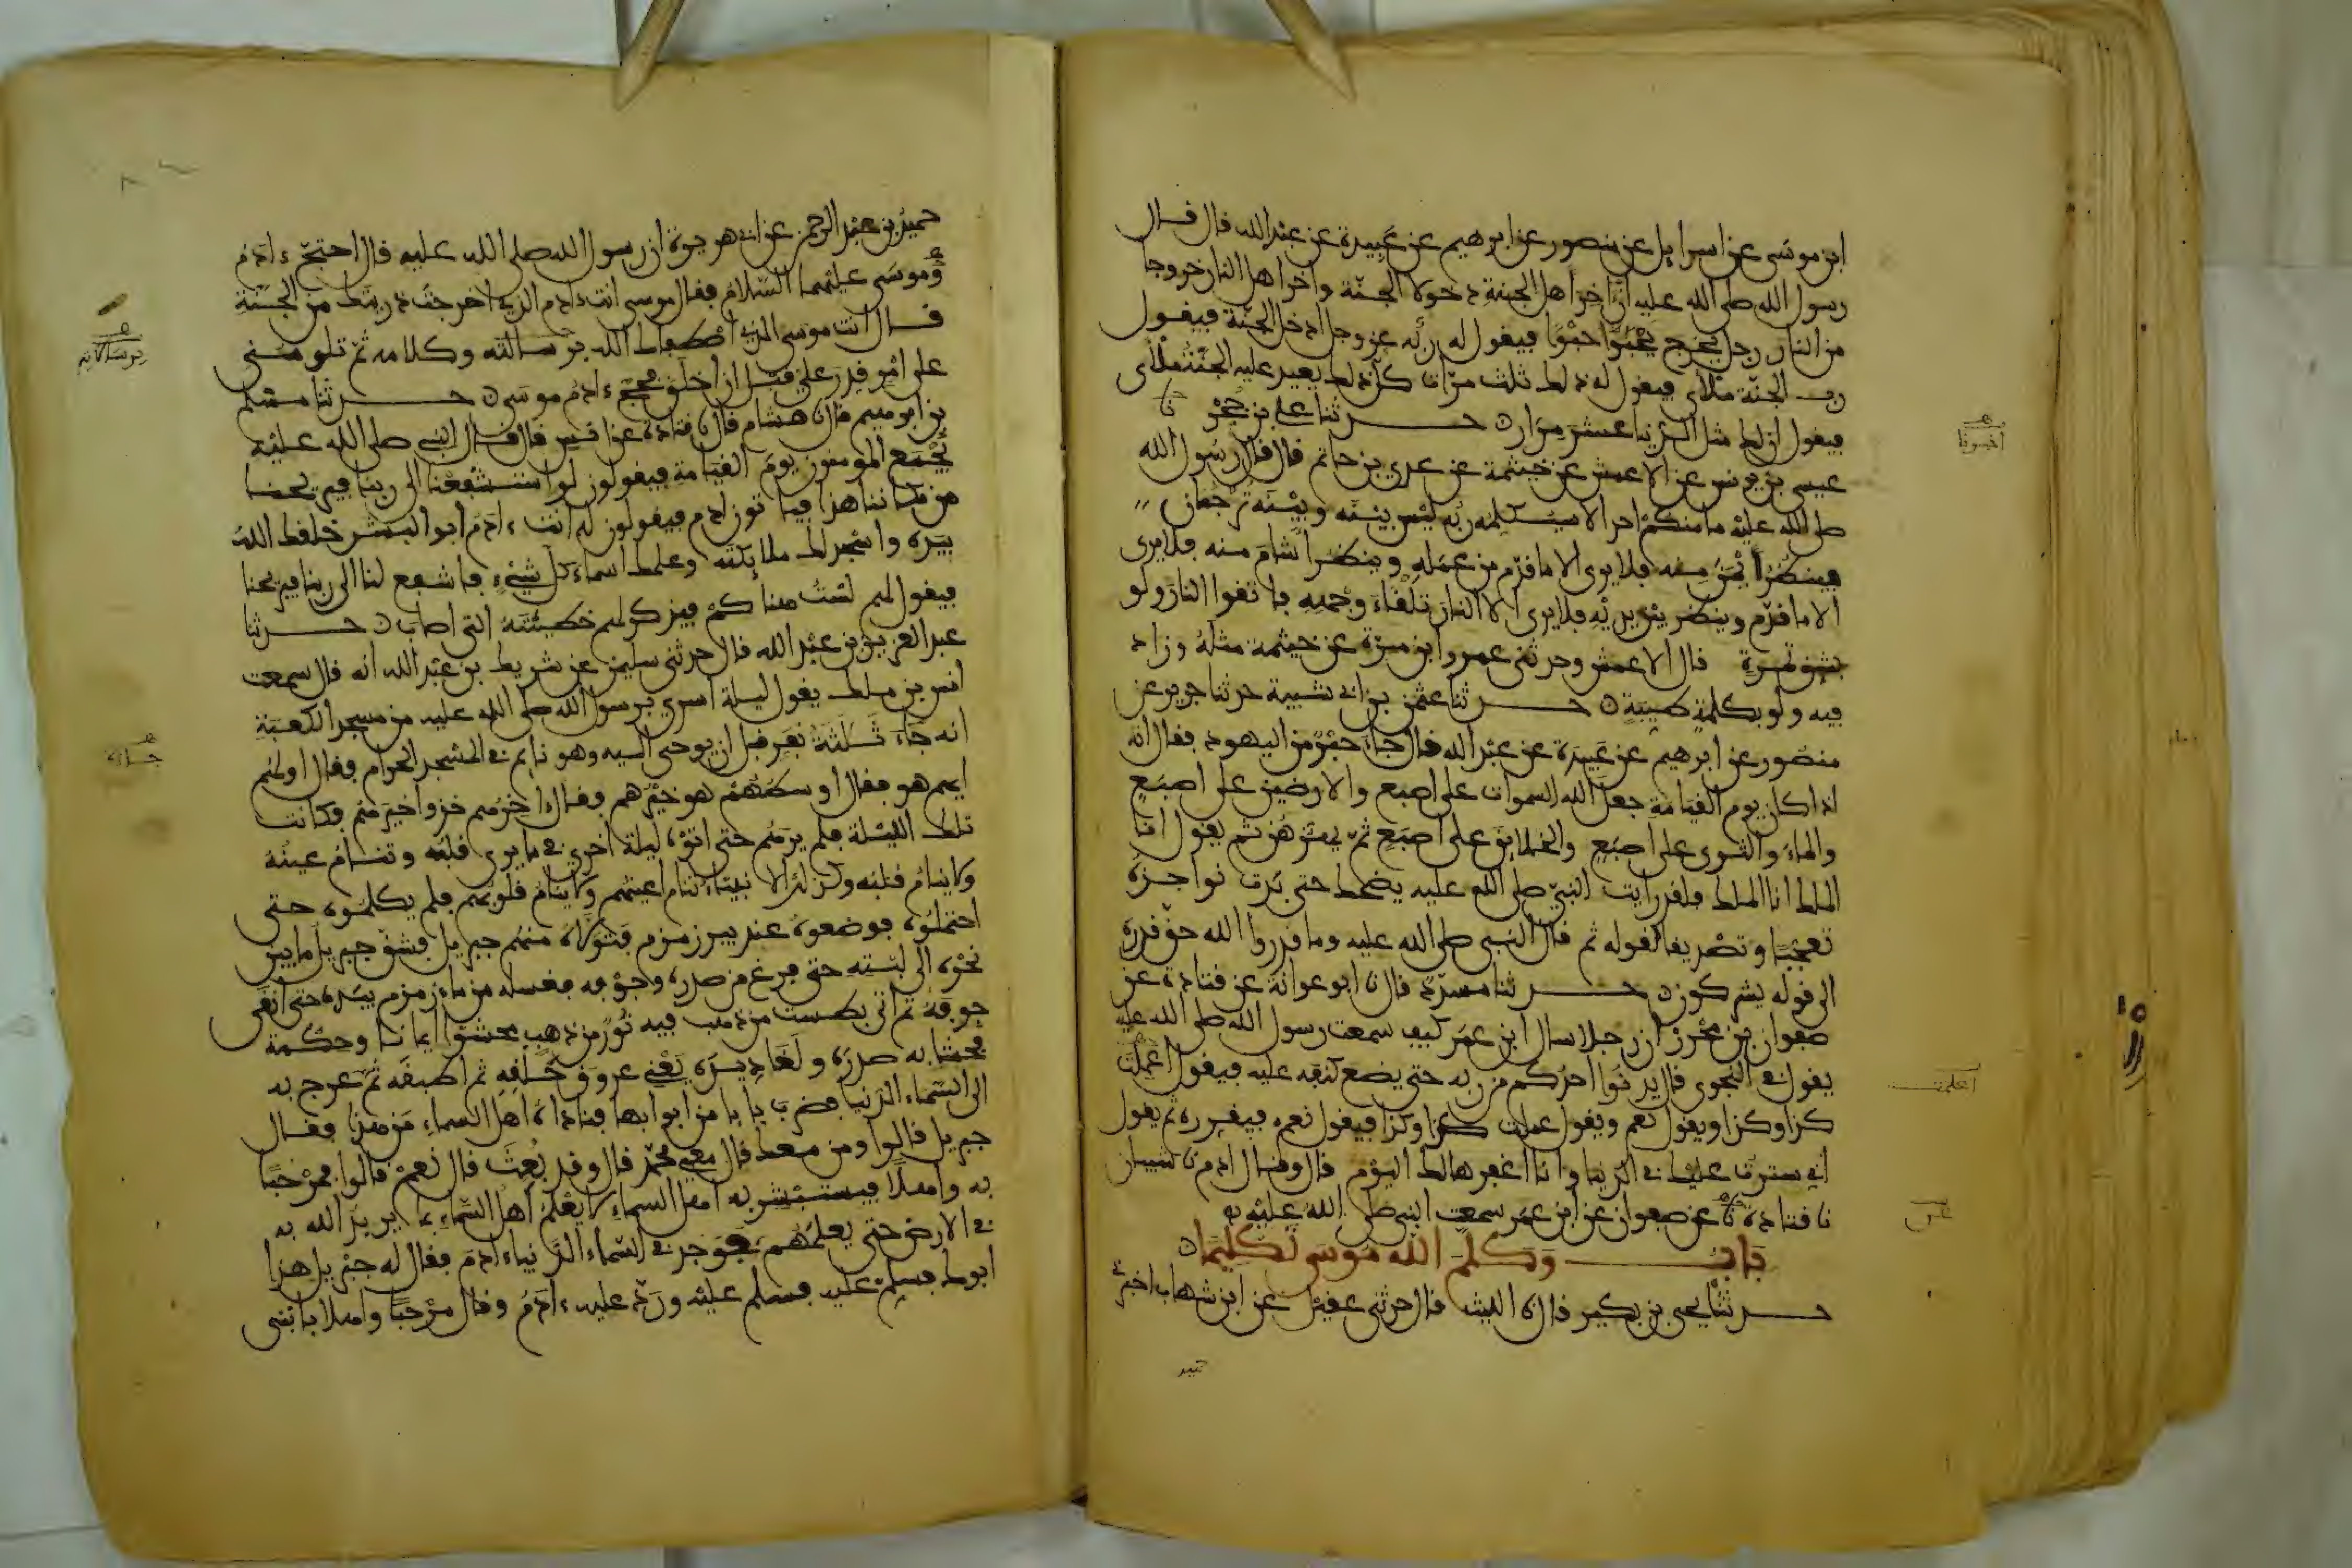 ابن موسى عن اسرايل عن منصور عن ابرهيم عن عبيدة عن عبد الله قال قال
رسول الله صلى الله عليه ان اخر اهل الجنة دخولا الجنة واخر اهل النار خروجا
من النار رجل يخرج حبوا فيقول له ربه عز وجل ادخل الجنة فيقول
رب الجنة ملأى فيقول له ذلك ثلث مرات كل ذلك يعيد عليه الجنة ملأى
فيقول ان لك مثل الدنيا عشر مرار حدثنا علي بن حجر نا
عيسى بن يونس عن الاعمش عن خيثمة عن عدي بن حاتم قال قال رسول الله
صلى الله عليه ما منكم احد الا سيكلمه ربه ليس بينه وبينه ترجمان
فينظر ايمن منه فلا يرى الا ما قدم من عمله وينظر اشأم منه فلا يرى
الا ما قدم وينظر بين يديه فلا يرى الا النار تلقاء وجهه فاتقوا النار ولو
بشق تمرة قال الاعمش وحدثني عمرو ابن مرة عن خيثمة مثله وزاد
فيه ولو بكلمة طيبة حدثنا عثمن بن ابي شيبة حدثنا جرير عن
منصور عن ابرهيم عن عبيدة عن عبد الله قال جاء حبر من اليهود فقال انه
اذا كان يوم القيامة جعل الله السموات على اصبع والارضين على اصبع
والماء والثرى على اصبع والخلايق على اصبع ثم يهزهن ثم يقول انا
الملك انا الملك فلقد رايت النبي صلى الله عليه يضحك حتى بدت نواجذه
تعجبا وتصديقا لقوله ثم قال النبي صلى الله عليه وما قدروا الله حق قدره
الى قوله يشركون حدثنا مسدد قال نا ابو عوانة عن قتادة عن
صفوان بن محرز ان رجلا سال ابن عمر كيف سمعت رسول الله صلى الله عليه
يقول في النجوى قال يدنوا احدكم من ربه حتى يضع كنفه عليه فيقول اعملت
كذا وكذا ويقول نعم ويقول عملت كذا وكذا فيقول نعم فيقرره ثم يقول
اني سترت عليك في الدنيا وانا اغفرها لك اليوم قال وقال ادم نا شيبان
نا قتادة نا عن صفوان عن ابن عمر سمعت النبي صلى الله عليه
باب وكلم الله موسى تكليما
حدثنا يحيى بن بكير قال نا الليث قال حدثني عقيل عن ابن شهاب اخبرني
اخبرنا
اعملت
حميد بن عبد الرحمن عن ابي هريرة ان رسول الله صلى الله عليه قال احتج ءادم
وموسى عليهما السلام فقال موسى انت ءادم الذي اخرجت ذريتك من الجنة
قال انت موسى الذي اصطفاك الله برسالته وكلامه ثم تلومني
على امر قدر علي قبل ان اخلق فحج ءادم موسى حدثنا مسلم
بن ابرهيم قال نا هشام قال نا قتادة عن انس قال قال النبي صلى الله عليه
يجمع المومنون يوم القيامة فيقولون لو استشفعنا الى ربنا فيريحنا
من مكاننا هذا فياتون ادم فيقولون له انت ءادم ابو البشر خلقك الله
بيده واسجد لك ملايكته وعلمك اسماء كل شيء فاشفع لنا الى ربنا فيريحنا
فيقول لهم لست هناكم فيذكر لهم خطيئته التي اصاب حدثنا
عبد العزيز بن عبد الله قال حدثني سليمن عن شريك بن عبد الله انه قال سمعت
انس بن ملك يقول ليلة اسري برسول الله صلى الله عليه من مسجد الكعبة
انه جاء ثلثة نفر قبل ان يوحى اليه وهو نايم في المسجد الحرام فقال اولهم
ايهم هو فقال اوسطهم هو خيرهم فقال اخرهم خذوا خيرهم فكانت
تلك الليلة فلم يرهم حتى اتوه ليلة اخرى فيما يرى قلبه وتنام عينه
ولا ينام قلبه وكذلك الانبياء تنام اعينهم ولا ينام قلوبهم فلم يكلموه حتى
احتملوه فوضعوه عند بير زمزم فتولاه منهم جبريل فشق جبريل ما بين
نحره الى لبته حتى فرغ من صدره وجوفه فغسله من ماء زمزم بيده حتى انقى
جوفه ثم اتي بطست من ذهب فيه تور من ذهب محشوا ايمانا وحكمة
فحشا به صدره ولغاديده يعني عروق حلقه ثم اطبقه ثم عرج به
الى السماء الدنيا فضرب بابا من ابوابها فناداه اهل السماء من هذا فقال
جبريل قالوا ومن معك قال معي محمد قال وقد بعث قال نعم قالوا فمرحبا
به واهلا فيستبشر به اهل السماء لا يعلم اهل السماء بما يريد الله به
في الارض حتى يعلمهم فوجد في السماء الدنياء ادم فقال له جبريل هذا
ابوك فسلم عليه فسلم عليه ورد عليه ءادم وقال مرحبا واهلا بابني
برسالاته
جاءه